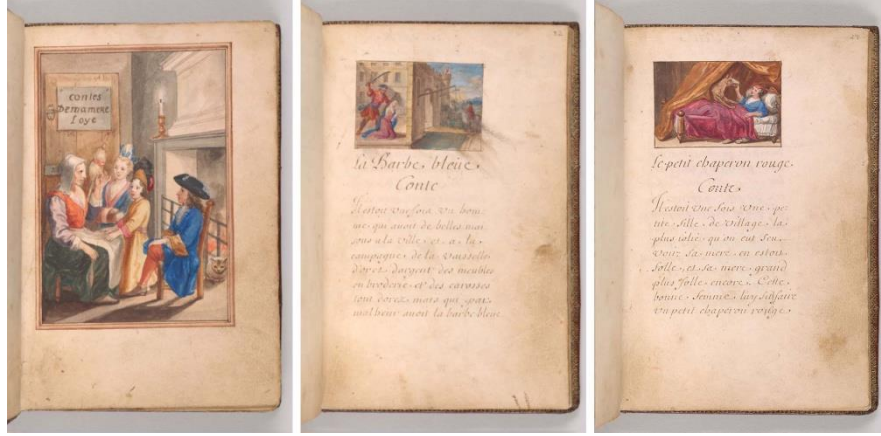 contes
De ma mere
Loye
La Barbe bleüe.
Conte
Il estoit une fois un hom
me qui avoit de belles mai
sons a la ville et a la
campagne de la vaisselle
d'or et d'argent des meubles
en broderie et des carosses
tout dorez mais par
malheur avoit la barbe bleüe
Le petit chaperon rouge.
Conte.
Il estoit une fois une pe
tite fille de village la
plus jolie qu on eut sceu
voir. sa mere en estoit
folle, et sa mere grand
plus folle encore. Cette
bonne femme luy fit faire
un petit chaperon rouge.